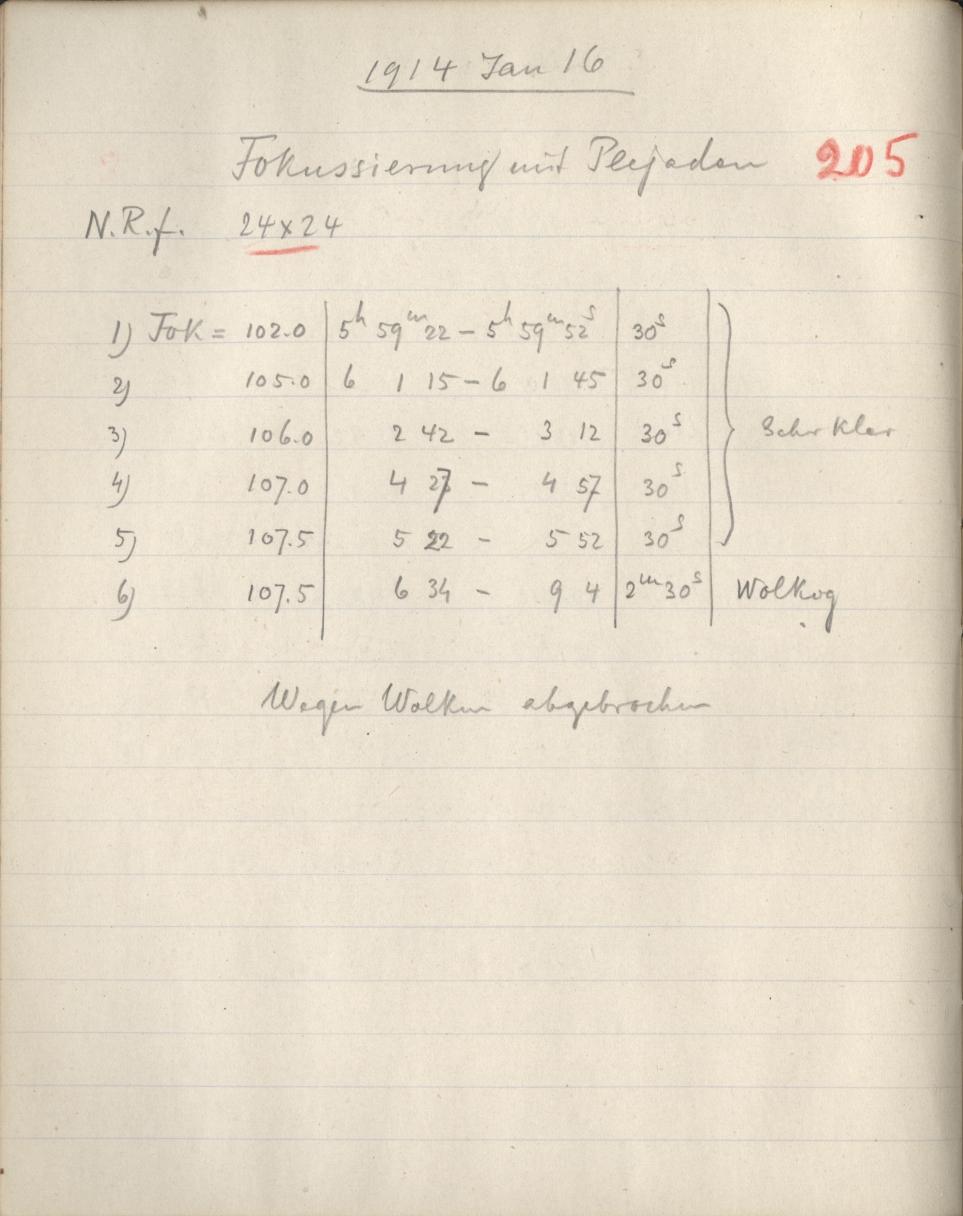 1914 Jan 16
Fokussierung mit Plejaden 205
N.R.f. 24x24
1) Fok = 102.0 5h 59m 22 – 5h 59m 52s 30s
2) 105.0 6 1 15 – 6 1 45 30s
3) 106.0 2 42 – 3 12 30s Sehr klar
4) 107.0 4 27 – 4 57 30s
5) 107.5 5 22 – 5 52 30s
6) 107.5 6 34 – 9 4 2m 30s Wolkig
Wegen Wolken abgebrochen